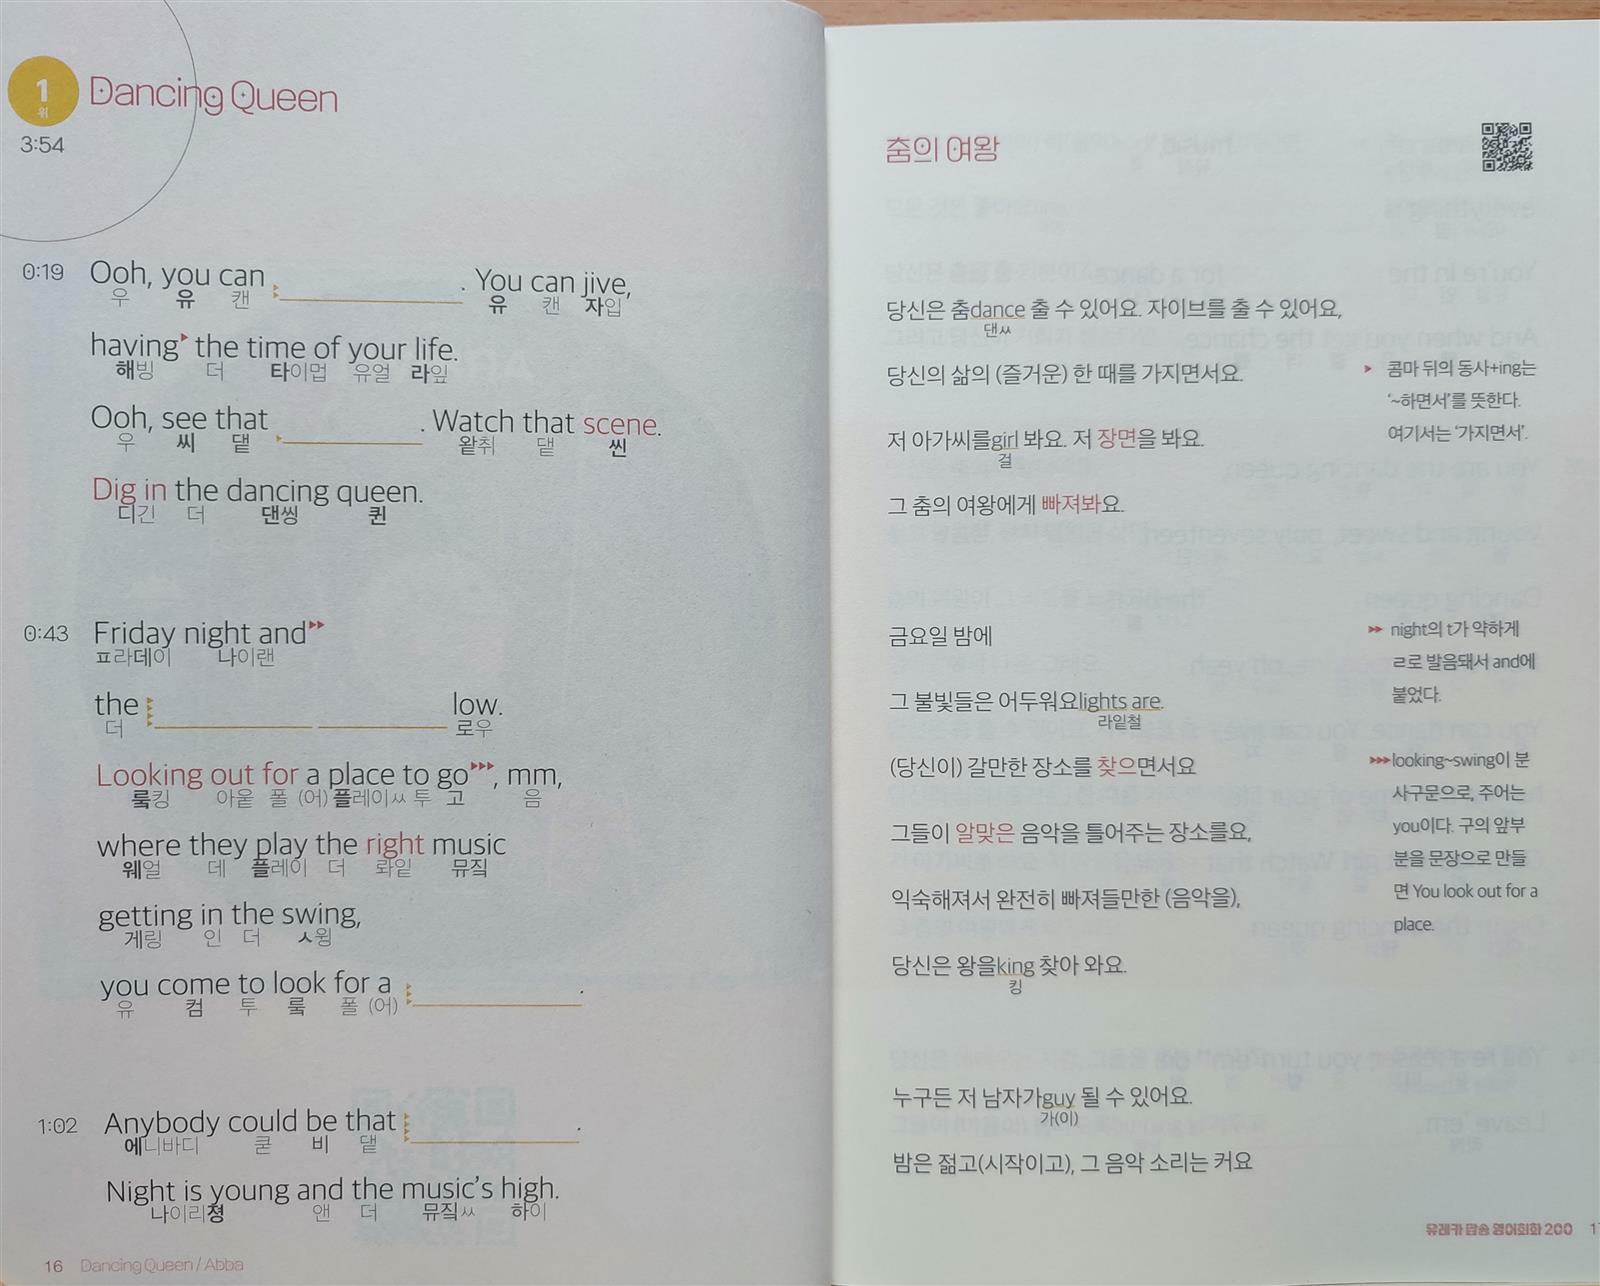 1위
Dancing Queen
3:54
0:19 Ooh, you can . You can jive,
우 유 캔 유 캔 자입
having the time of your life.
해빙 더 타이멉 유얼 라잎
Ooh, see that . Watch that scene.
우 씨 댙 왙취 댙 씬
Dig in the dancing queen.
디긴 더 댄씽 퀸
0:43 Friday night and
ㅍ라데이 나이랜
the low.
더 로우
Looking out for a place to go, mm,
뤀킹 아웉 폴 (어) 플레이ㅆ 투 고 음
where they play the right music
웨얼 데 플레이 더 롸잍 뮤짘
getting in the swing,
게링 인 더 ㅅ윙
you come to look for a .
유 컴 투 뤀 폴 (어)
1:02 Anybody could be that .
에니바디 쿧 비 댙
Night is young and the music's high.
나이리졍 앤 더 뮤짘ㅆ 하이
16 Dancing Queen / Abba
춤의 여왕
당신은 춤dance 출 수 있어요. 자이브를 출 수 있어요,
댄ㅆ
당신의 삶의 (즐거운) 한 때를 가지면서요.
저 아가씨를girl 봐요. 저 장면을 봐요.
걸
그 춤의 여왕에게 빠져봐요.
콤마 뒤의 동사+ing는
'~하면서'를 뜻한다.
여기서는 '가지면서'.
금요일 밤에
그 불빛들은 어두워요lights are.
라잍철
(당신이) 갈만한 장소를 찾으면서요
그들이 알맞은 음악을 틀어주는 장소를요,
익숙해져서 완전히 빠져들만한 (음악을),
당신은 왕을king 찾아 와요.
킹
night의 t가 약하게
ㄹ로 발음돼서 and에
붙었다.
looking~swing이 분
사구문으로, 주어는
you이다. 구의 앞부
분을 문장으로 만들
면 You look out for a
place.
누구든 저 남자가guy 될 수 있어요.
가(이)
밤은 젊고(시작이고), 그 음악 소리는 커요
유레카 팝송 영어회화 200